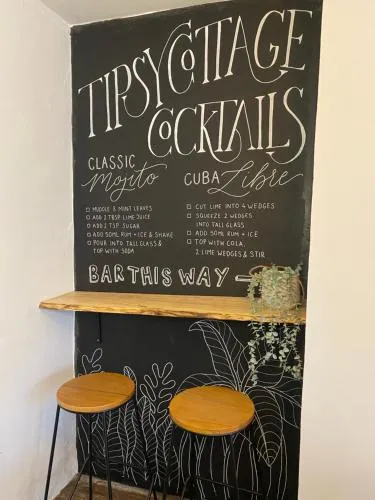 TIPSY COTTAGE
COCKTAILS
CLASSIC
Mojito
□ MUDDLE 8 MINT LEAVES
□ ADD 2 TBSP LIME JUICE
□ ADD 2 TSP SUGAR
□ ADD 50ML RUM + ICE & SHAKE
□ POUR INTO TALL GLASS &
TOP WITH SODA
CUBA Libre
□ CUT LIME INTO 4 WEDGES
□ SQUEEZE 2 WEDGES
INTO TALL GLASS
□ ADD 50ML RUM + ICE
□ TOP WITH COLA,
2 LIME WEDGES & STIR
BAR THIS WAY